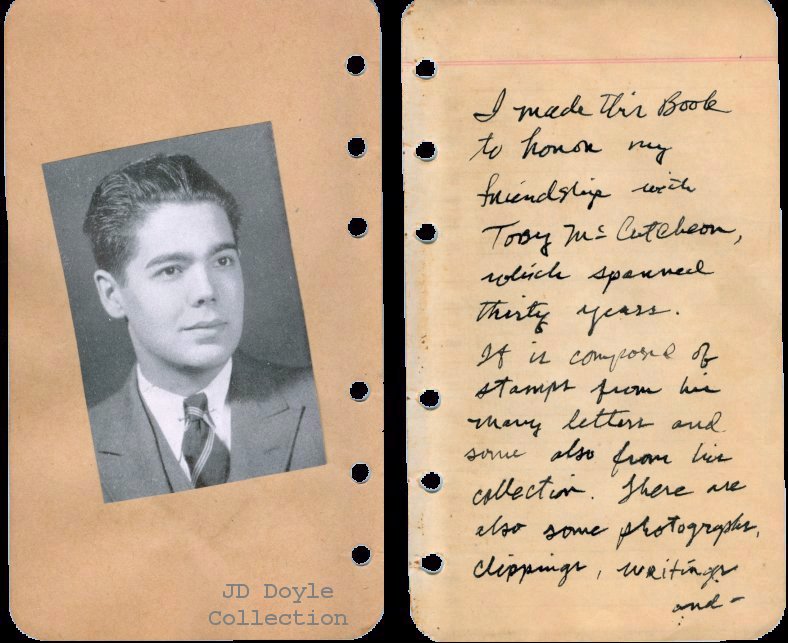 I made this Book
to honor my
friendship with
Tony McCutcheon,
which spanned
thirty years.
It is composed of
stamps from his
many letters and
some also from his
collection. There are
also some photographs,
clippings, writings
and-
JD Doyle
Collection